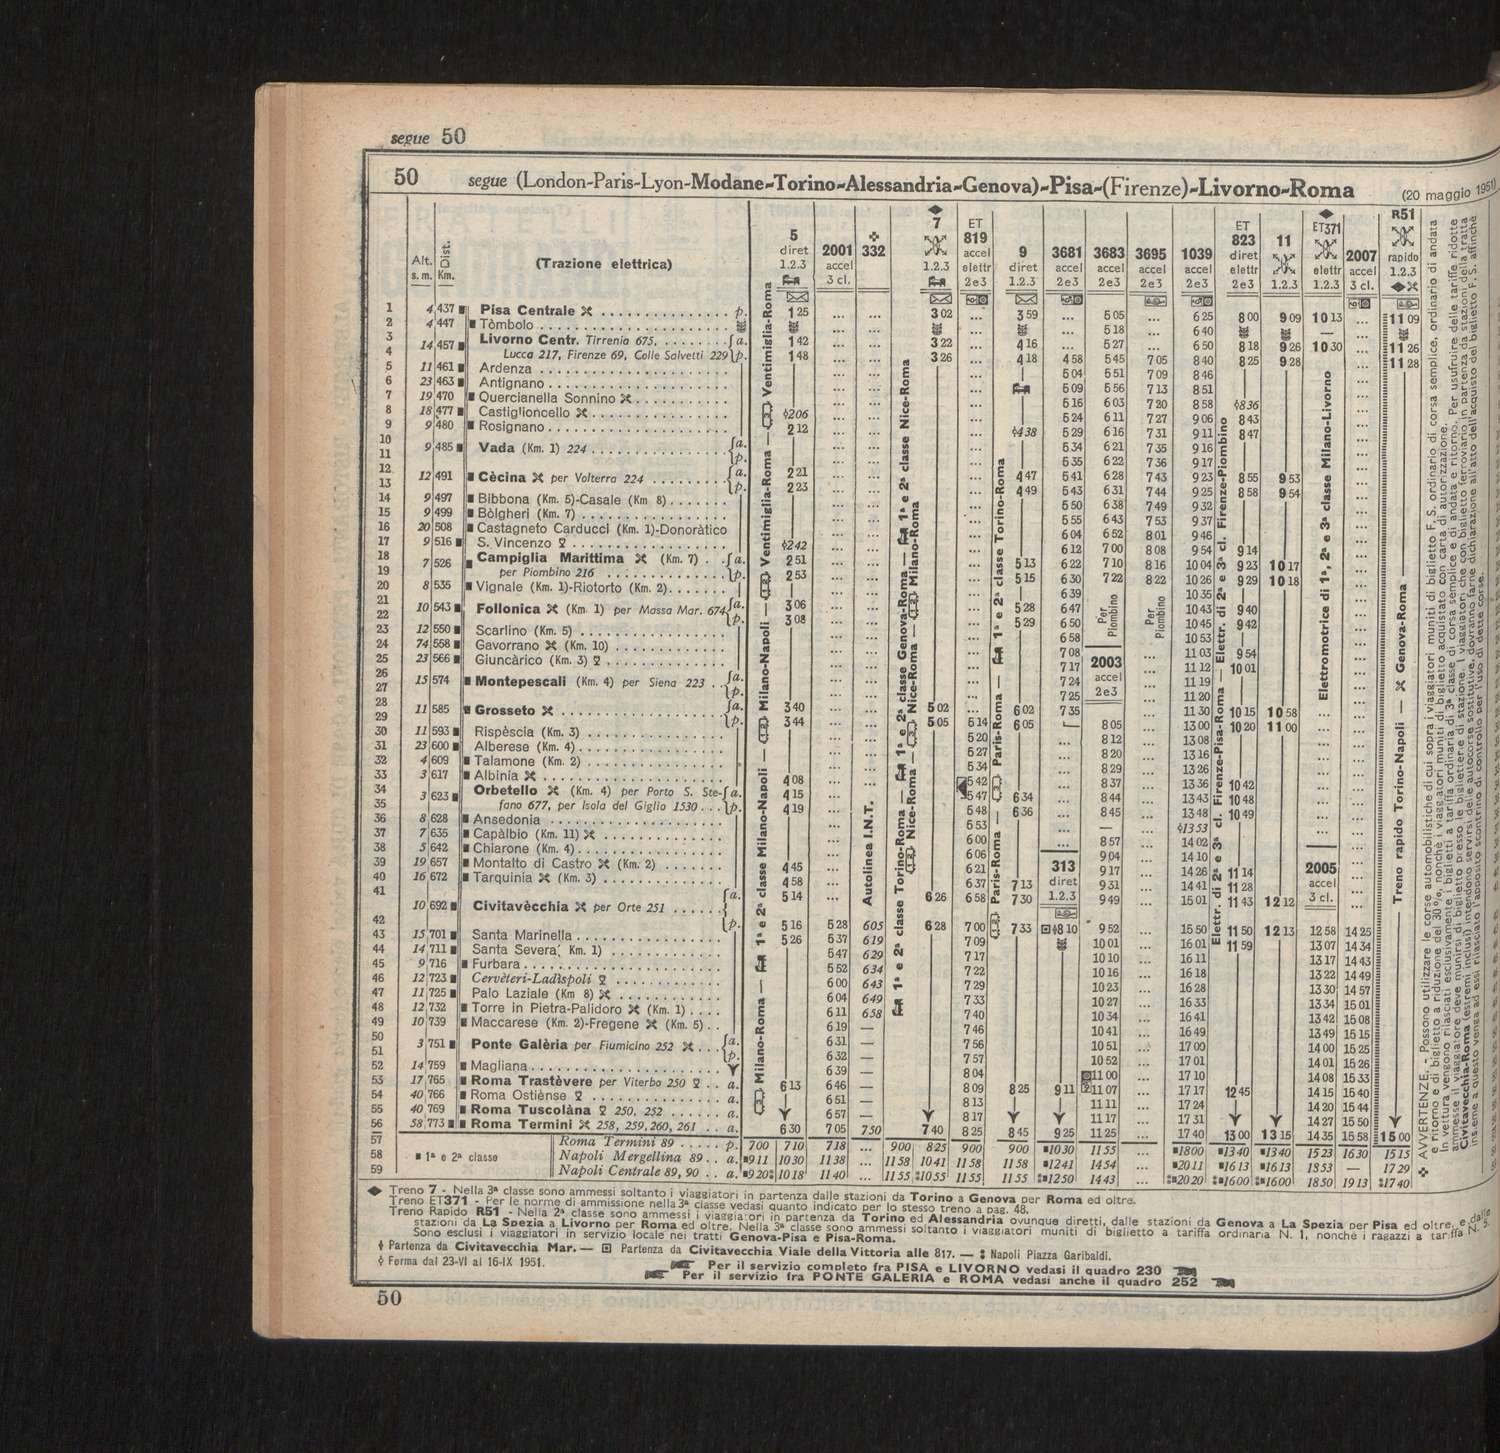 segue 50
50 segue (London-Paris-Lyon-Modane-Torino-Alessandria-Genova)-Pisa-(Firenze)-Livorno-Roma (20 maggio 1951)
Alt. s. m. Dist. Km. (Trazione elettrica)
5 diret 1.2.3
2001 accel 3 cl.
332
7 1.2.3
ET 819 accel elettr 2e3
9 diret 1.2.3
3681 accel 2e3
3683 accel 2e3
3695 accel 2e3
1039 accel 2e3
ET 823 diret elettr 2e3
11 1.2.3
ET371 elettr 1.2.3
2007 accel 3 cl.
R51 rapido 1.2.3
1 4 437 Pisa Centrale p. 1 25 ... ... 3 02 ... 3 59 ... 5 05 ... 6 25 8 00 9 09 10 13 ... 11 09
2 4 447 Tòmbolo ... ... ... ... 5 18 ... 6 40 — ...
3 14 457 Livorno Centr. Tirrenia 675, a. 1 42 ... ... 3 22 ... 4 16 ... 5 27 ... 6 50 8 18 9 26 10 30 ... 11 26
4 Lucca 217, Firenze 69, Colle Salvetti 229 p. 1 48 ... ... 3 26 ... 4 18 4 58 5 45 7 05 8 40 8 25 9 28 ... 11 28
5 11 461 Ardenza 5 04 5 51 7 09 8 46
6 23 463 Antignano 5 09 5 56 7 13 8 51
7 19 470 Quercianella Sonnino 5 16 6 03 7 20 8 58 836
8 18 477 Castiglioncello 206 5 24 6 11 7 27 9 06 8 43
9 9 480 Rosignano 2 12 438 5 29 6 16 7 31 9 11 8 47
10 9 485 Vada (Km. 1) 224 a. 5 34 6 21 7 35 9 16
11 p. 5 35 6 22 7 36 9 17
12 12 491 Cècina per Volterra 224 a. 2 21 4 47 5 41 6 28 7 43 9 23 8 55 9 53
13 p. 2 23 4 49 5 43 6 31 7 44 9 25 8 58 9 54
14 9 497 Bibbona (Km. 5)-Casale (Km 8) 5 50 6 38 7 49 9 32
15 9 499 Bòlgheri (Km. 7) 5 55 6 43 7 53 9 37
16 20 508 Castagneto Carducci (Km. 1)-Donoràtico 6 04 6 52 8 01 9 46
17 9 516 S. Vincenzo 242 6 12 7 00 8 08 9 54 9 14
18 7 526 Campiglia Marittima (Km. 7) a. 2 51 5 13 6 22 7 10 8 16 10 04 9 23 10 17
19 per Piombino 216 p. 2 53 5 15 6 30 7 22 8 22 10 26 9 29 10 18
20 8 535 Vignale (Km. 1)-Riotorto (Km. 2) 6 39 10 35
21 10 543 Follonica (Km. 1) per Massa Mar. 674 a. 3 06 5 28 6 47 Per Piombino Per Piombino 10 43 9 40
22 p. 3 08 5 29 6 50 10 45 9 42
23 12 550 Scarlino (Km. 5) 6 58 10 53
24 74 558 Gavorrano (Km. 10) 7 08 11 03 9 54
25 23 566 Giuncàrico (Km. 3) 7 17 2003 accel 2e3 11 12 10 01
26 15 574 Montepescali (Km. 4) per Siena 223 a. 7 24 11 19
27 p. 7 25 11 20
28 11 585 Grosseto a. 3 40 5 02 6 02 7 35 11 30 10 15 10 58
29 p. 3 44 5 05 5 14 6 05 8 05 13 00 10 20 11 00
30 11 593 Rispèscia (Km. 3) 5 20 8 12 13 08
31 23 600 Alberese (Km. 4) 5 27 8 20 13 16
32 4 609 Talamone (Km. 2) 5 34 8 29 13 26
33 3 617 Albinia 4 08 5 42 8 37 13 36 10 42
34 3 623 Orbetello (Km. 4) per Porto S. Ste- a. 4 15 5 47 6 34 8 44 13 43 10 48
35 fano 677, per Isola del Giglio 1530 p. 4 19 5 48 6 36 8 45 13 48 10 49
36 8 628 Ansedonia 5 53 — 1353
37 7 635 Capàlbio (Km. 11) 6 00 8 57 14 02
38 5 642 Chiarone (Km. 4) 6 06 9 04 14 10
39 19 657 Montalto di Castro (Km. 2) 4 45 6 21 313 diret 1.2.3 9 17 14 26 11 14 2005 accel 3 cl.
40 16 672 Tarquinia (Km. 3) 4 58 6 37 7 13 9 31 14 41 11 28
41 10 692 Civitavècchia per Orte 251 a. 5 14 6 26 6 58 7 30 9 49 15 01 11 43 12 12
42 p. 5 16 5 28 605 6 28 7 00 7 33 8 10 9 52 15 50 11 50 12 13 12 58 14 25
43 15 701 Santa Marinella 5 26 5 37 619 7 09 10 01 16 01 11 59 13 07 14 34
44 14 711 Santa Severa (Km. 1) 5 47 629 7 17 10 10 16 11 13 17 14 43
45 9 716 Furbara 5 52 634 7 22 10 16 16 18 13 22 14 49
46 12 723 Cervèteri-Ladìspoli 6 00 643 7 29 10 23 16 28 13 30 14 57
47 11 725 Palo Laziale (Km 8) 6 04 649 7 33 10 27 16 33 13 34 15 01
48 12 732 Torre in Pietra-Palidoro (Km. 1) 6 11 658 7 40 10 34 16 41 13 42 15 08
49 10 739 Maccarese (Km. 2)-Fregene (Km. 5) 6 19 — 7 46 10 41 16 49 13 49 15 15
50 3 751 Ponte Galèria per Fiumicino 252 a. 6 31 — 7 56 10 51 17 00 14 00 15 25
51 p. 6 32 — 7 57 10 52 17 01 14 01 15 26
52 14 759 Magliana 6 39 — 8 04 11 00 17 10 14 08 15 33
53 17 765 Roma Trastèvere per Viterbo 250 a. 6 13 6 46 — 8 09 8 25 9 11 11 07 17 17 12 45 14 15 15 40
54 40 766 Roma Ostiènse 6 51 — 8 13 11 11 17 24 14 20 15 44
55 40 769 Roma Tuscolàna 250, 252 a. 6 57 — 8 17 11 17 17 31 14 27 15 50
56 58 773 Roma Termini 258, 259, 260, 261 a. 6 30 7 05 7 50 7 40 8 25 8 45 9 25 11 25 17 40 13 00 13 15 14 35 15 58 15 00
57 Roma Termini 89 p. 700 710 718 ... 900 825 900 900 1030 1155 1800 1340 1340 1523 1630 1515
58 1ª e 2ª classe Napoli Mergellina 89 a. 911 1030 1138 ... 1158 1041 1158 1158 1241 1454 2011 1613 1613 1853 — 1729
59 Napoli Centrale 89, 90 a. 920 1018 1140 ... 1155 1055 1155 1155 1250 1443 2020 1600 1600 1850 1913 1740
Autolinea I.N.T.
Elettromotrice di 1ª, 2ª e 3ª classe Milano-Livorno
Treno rapido Torino-Napoli — Genova-Roma
Treno 7 - Nella 3ª classe sono ammessi soltanto i viaggiatori in partenza dalle stazioni da Torino a Genova per Roma ed oltre.
Treno ET371 - Per le norme di ammissione nella 3ª classe vedasi quanto indicato per lo stesso treno a pag. 48.
Treno Rapido R51 - Nella 2ª classe sono ammessi i viaggiatori in partenza da Torino ed Alessandria ovunque diretti, dalle stazioni da Genova a La Spezia per Pisa ed oltre, e dalle
stazioni da La Spezia a Livorno per Roma ed oltre. Nella 3ª classe sono ammessi soltanto i viaggiatori muniti di biglietto a tariffa ordinaria N. 1, nonché i ragazzi a tariffa N. 5.
Sono esclusi i viaggiatori in servizio locale nei tratti Genova-Pisa e Pisa-Roma.
Partenza da Civitavecchia Mar. — Partenza da Civitavecchia Viale della Vittoria alle 817. — Napoli Piazza Garibaldi.
Ferma dal 23-VI al 16-IX 1951.
Per il servizio completo fra PISA e LIVORNO vedasi il quadro 230
Per il servizio fra PONTE GALERIA e ROMA vedasi anche il quadro 252
50